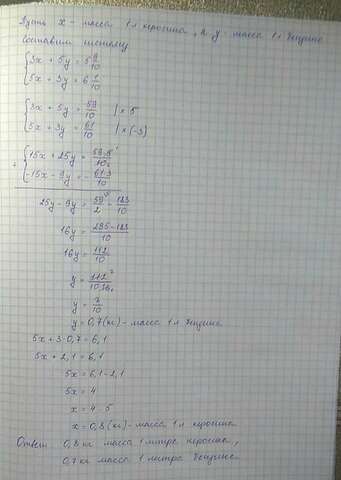 Пусть x - масса 1 л керосина, а y - масса 1 л бензина
Составим систему
{3x + 5y = 5 9/10
{5x + 3y = 6 1/10
{3x + 5y = 59/10 | × 5
{5x + 3y = 61/10 | × (-3)
+ {15x + 25y = 59·5/10
{-15x - 9y = -61·3/10
25y - 9y = 59/2 - 183/10
16y = (295-183)/10
16y = 112/10
y = 112/10·16
y = 7/10
y = 0,7 (кг) - масса 1 л бензина
5x + 3·0,7 = 6,1
5x + 2,1 = 6,1
5x = 6,1 - 2,1
5x = 4
x = 4 : 5
x = 0,8 (кг) - масса 1 л керосина
Ответ: 0,8 кг масса 1 литра керосина,
0,7 кг масса 1 литра бензина